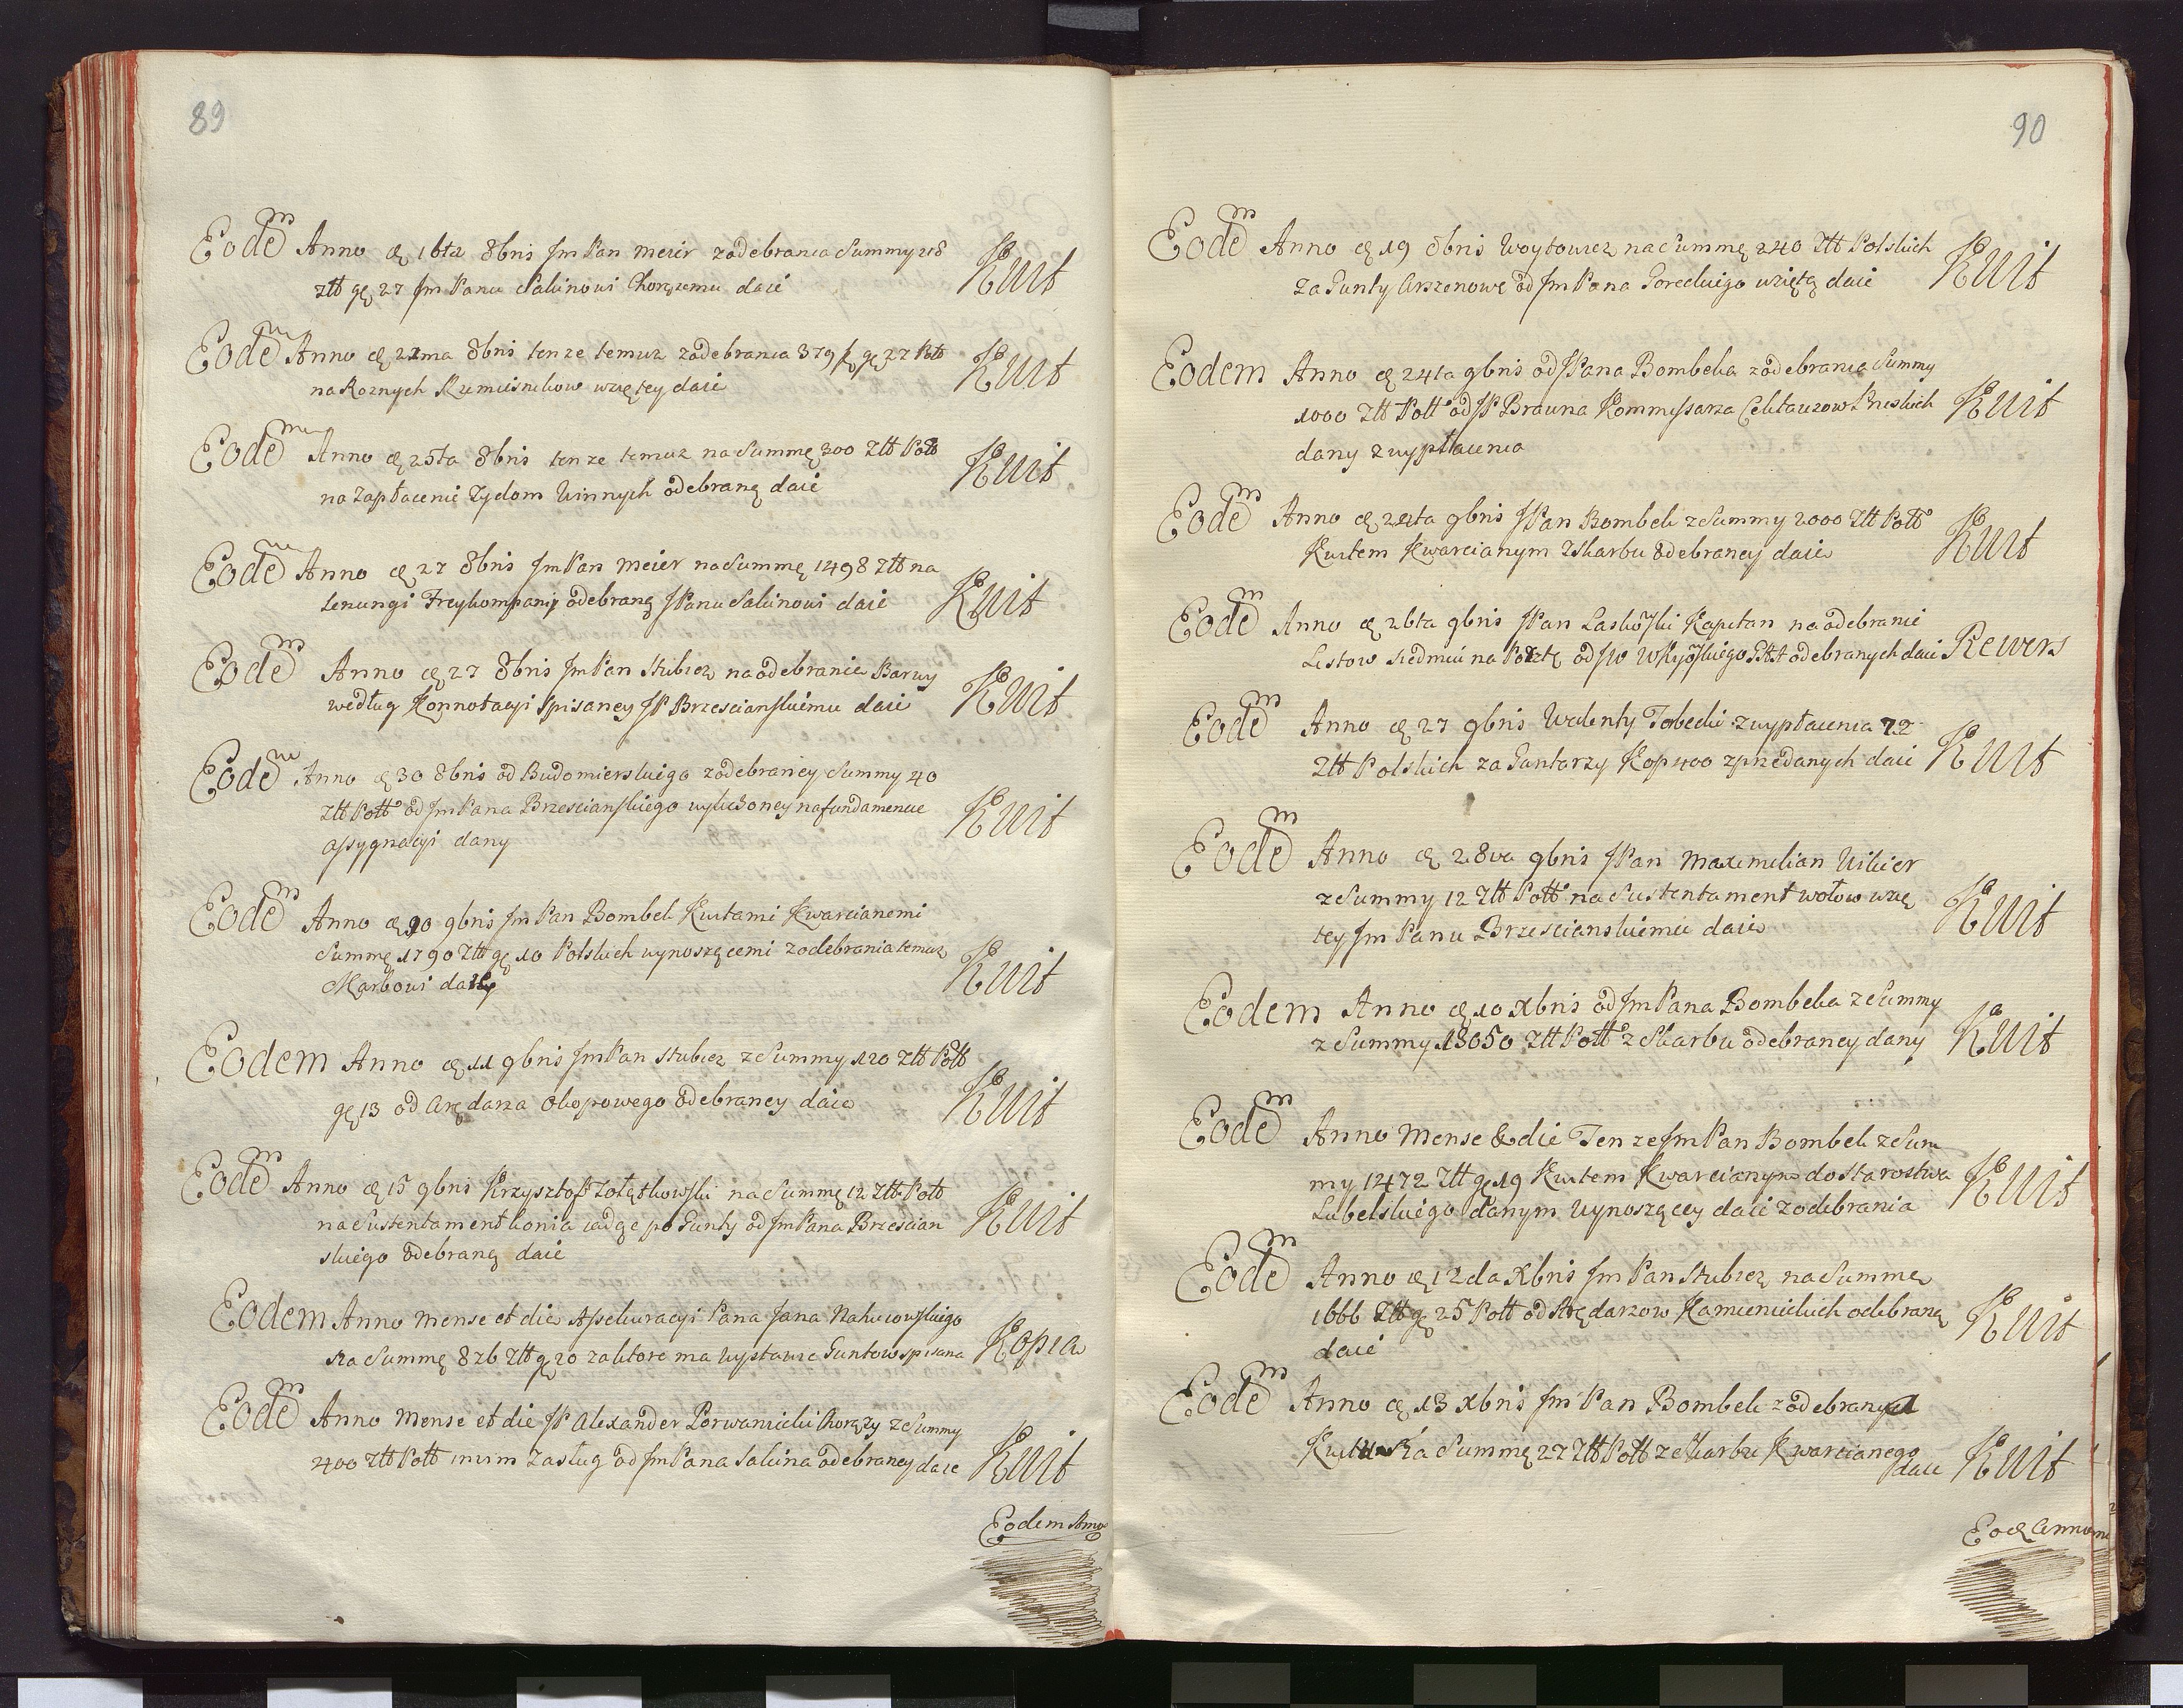 89
Eodem Anno 16ta 8bris Jm Pan Meier z odebrania Summy 218 Kwit
Ztt gr 27 Jm Panu Salinowi Chorązemu daie
Eodem Anno 22ma 8bris tenze temuz z odebrania 379 gr 27 Pol Kwit
na Roznych Rzmiesnikow wziętey daie
Eodem Anno 25ta 8bris tenze temuz na Summę 300 Ztt Pol Kwit
na Zapłacenie Zydom Winnych odebraną daie
Eodem Anno 27 8bris Jm Pan Meier na Summę 1498 Ztt na
lenungi Freykompanij odebraną JPanu Salinowi daie Kwit
Eodem Anno 27 8bris Jm Pan Stubicz na odebranie Barwy
według Konnotacyi Spisaney JP Brzescianskiemu daie Kwit
Eodem Anno 30 8bris od Budomierskiego z odebraney Summy 40
Ztt Poll od Jm Pana Brzescianskiego wyliczoney na fundamencie Kwit
assygnacyi dany
Eodem Anno 10 9bris Jm Pan Bombek Kwitami Kwarcianemi
Summę 1790 Ztt gr 10 Polskich wynoszącemi z odebrania temuz Kwit
Skarbowi dany
Eodem Anno 11 9bris Jm Pan Stubicz z Summy 120 Ztt Poll
gr 13 od Arędarza Okopowego odebraney daie Kwit
Eodem Anno 15 9bris Krzysztoff Zołątkowski na Summę 12 Ztt Poll
na Sustentament konia iadąc po Gunty od Jm Pana Brzescian Kwit
skiego odebraną daie
Eodem Anno Mense et die Assekuracyi Pana Jana Nahuiowskiego
Na Summę 826 Ztt gr 20 za ktore ma wystawic Guntow spisana Kopia
Eodem Anno Mense et die JP Alexander Porwanicki Chorązy z Summy
400 Ztt Poll in vim Zasług od Jm Pana Salina odebraney daie Kwit
Eodem Anno
90
Eodem Anno 19 8bris Woytowicz na Summę 240 Ztt Polskich Kwit
Za Gunty Arszenowe od Jm Pana Goreckiego wziętą daie
Eodem Anno 24ta 9bris od JPana Bombeka z odebrania Summy
1000 Ztt Poll od JP Brauna Kommissarza Cekauzow Pruskich Kwit
dany z wypłacenia
Eodem Anno 24ta 9bris JPan Bombek z Summy 2000 Ztt Poll
Kwitem Kwarcianym z Skarbu odebraney daie Kwit
Eodem Anno 26ta 9bris JPan Laskowski Kapitan na odebranie
Listow siedmiu na Pocztę od JW odebranych daie Rewers
Eodem Anno 27 9bris Walenty Tobecki z wypłacenia 72
Ztt Polskich za Guntarzy Kop 400 zprzedanych daie Kwit
Eodem Anno 28va 9bris JPan Maximilian Uihier
z Summy 12 Ztt Poll na Sustentament wołow wzię
tey Jm Panu Brzescianskiemu daie Kwit
Eodem Anno 10 Xbris od Jm Pana Bombeka z Summy
z Summy 13050 Ztt Poll z Skarbu odebraney dany Kwit
Eodem Anno Mense & die Tenze Jm Pan Bombek z Sum
my 1472 Ztt gr 19 Kwitem Kwarcianym do Starostwa
Lubelskiego danym Wynoszącey daie z odebrania Kwit
Eodem Anno 12da Xbris Jm Pan Stubicz na Summę
1666 Ztt gr 25 Poll od Arędarzow Kamienickich odebraną
daie Kwit
Eodem Anno 13 Xbris Jm Pan Bombek z odebranych
Kwitu Na Summę 27 Ztt Poll ze Skarbu Kwarcianego
daie Kwit
Eod Anno